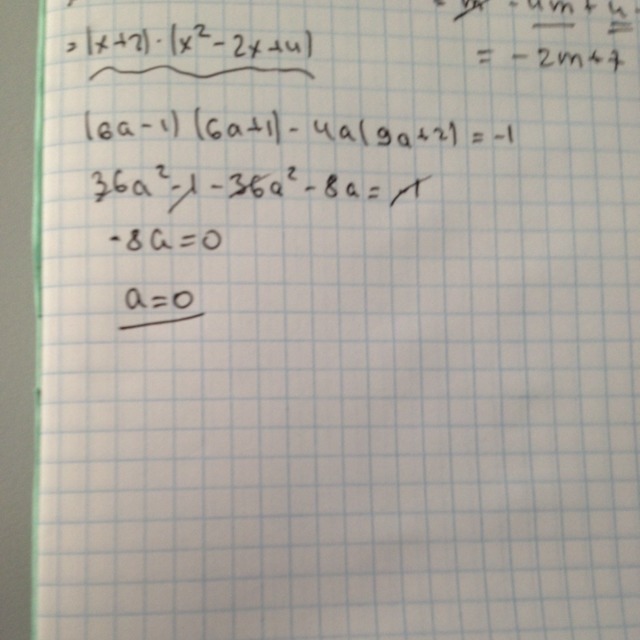 = (x+2) · (x² - 2x + 4)
= - 2m + 7
(6a - 1) (6a + 1) - 4a(9a + 2) = -1
36a² - 1 - 36a² - 8a = -1
-8a = 0
a = 0